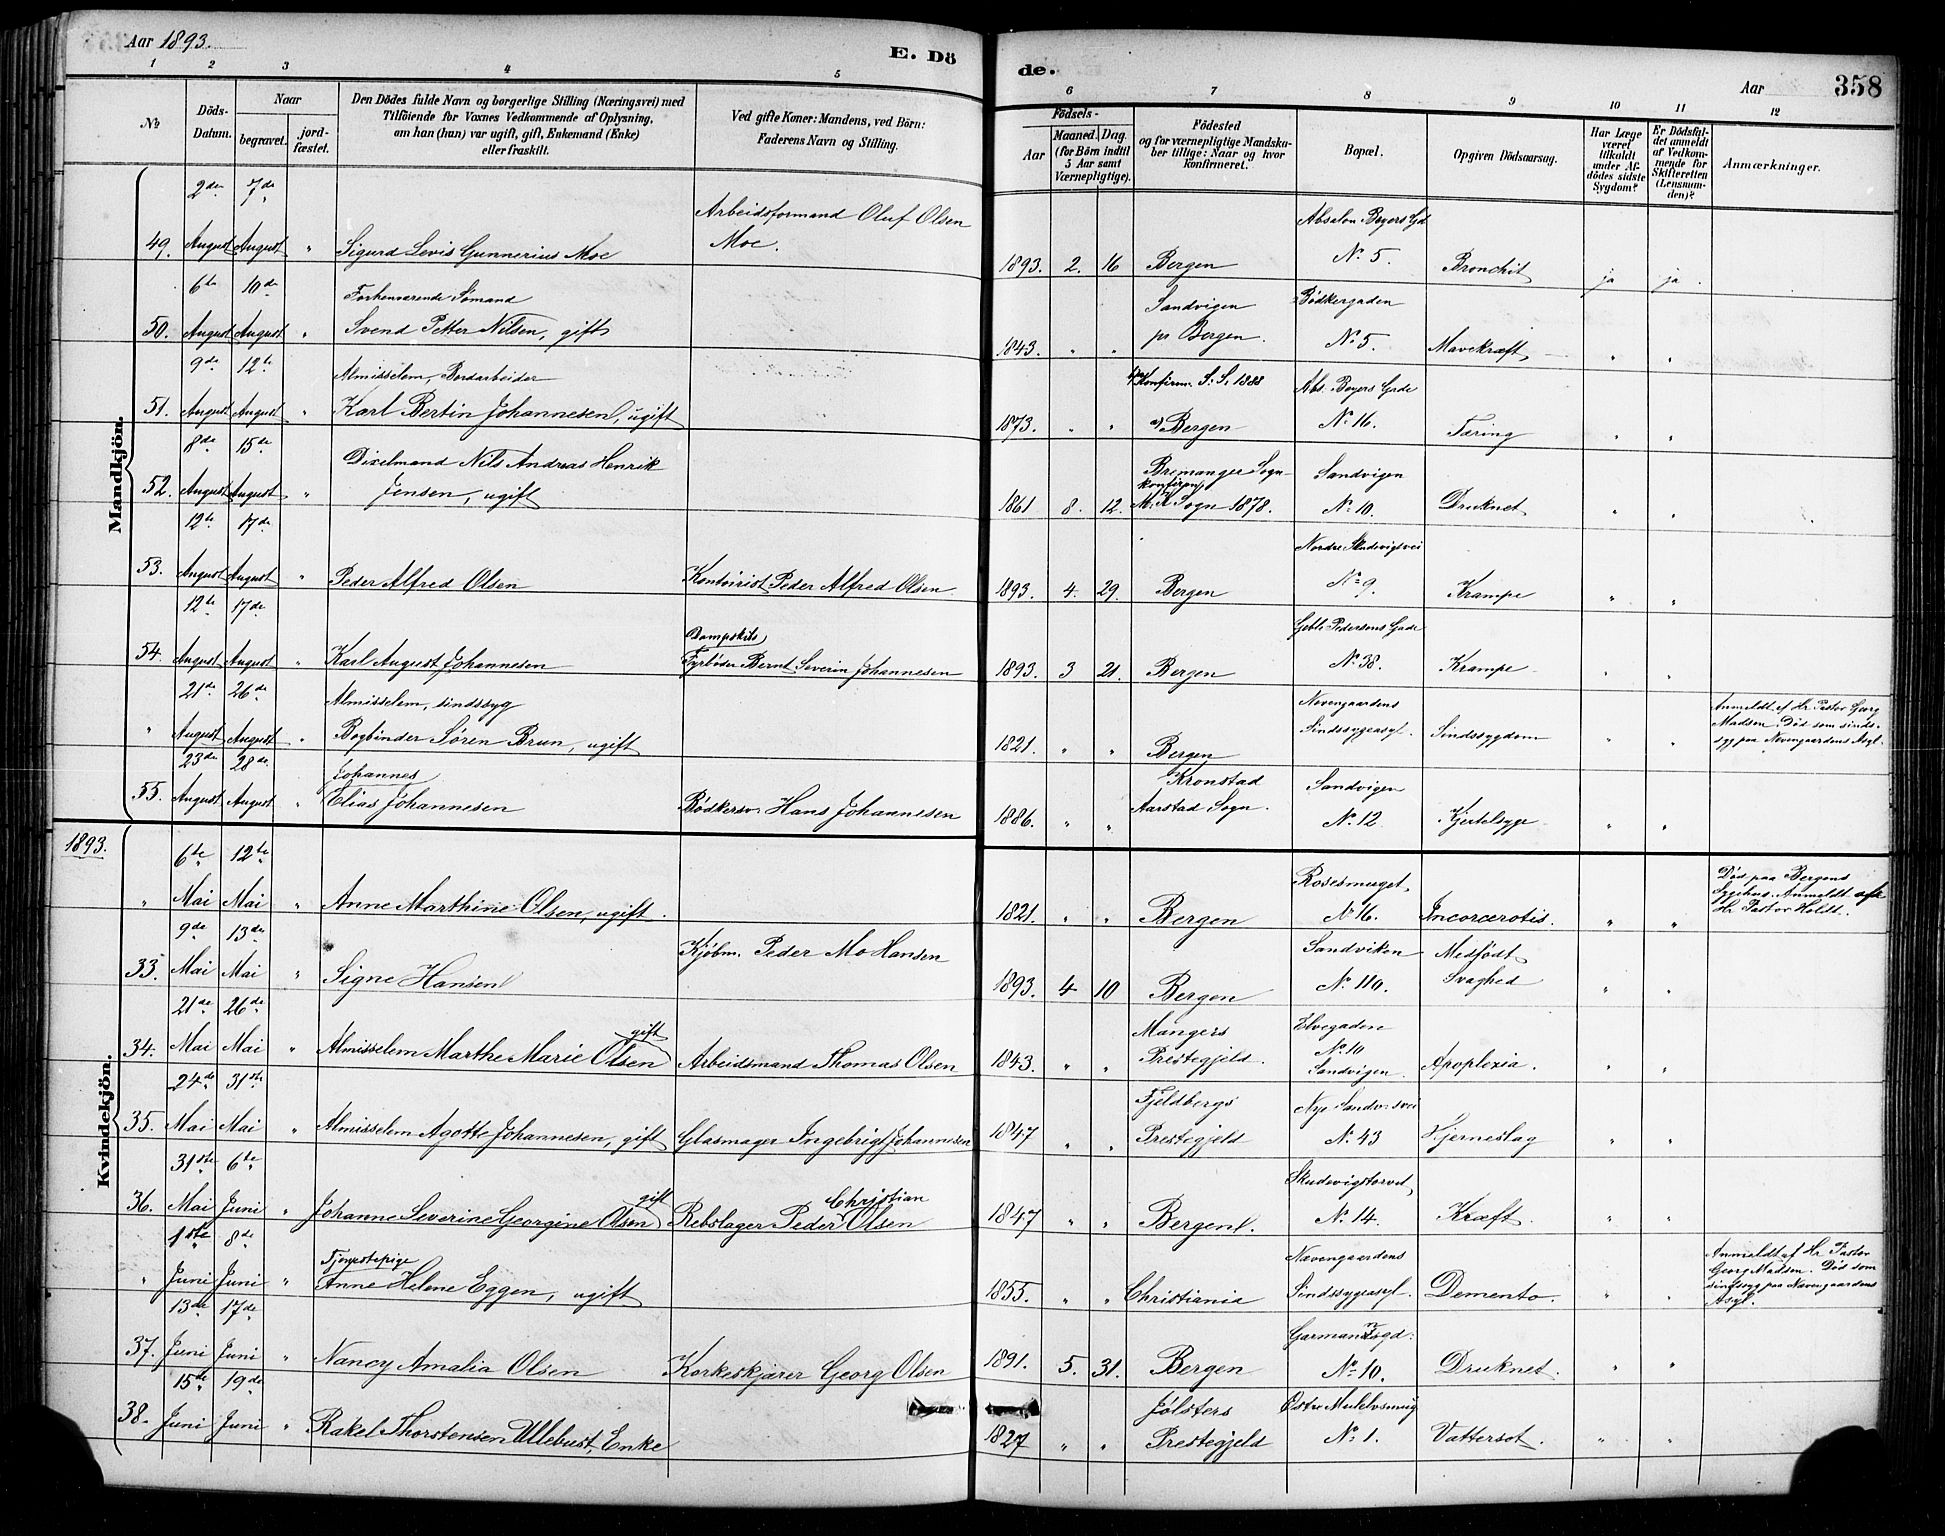 Aar 1893.
E. Dö
de.
Aar
358
1 2 3 4 5 6 7 8 9 10 11 12
No
Döds-Datum.
Naar
begravet.
jord-fæstet.
Den Dödes fulde Navn og borgerlige Stilling (Næringsvei) med
Tilföiende for Voxnes Vedkommende af Oplysning,
om han (hun) var ugift, gift, Enkemand (Enke)
eller fraskilt.
Ved gifte Koner: Mandens, ved Börn:
Faderens Navn og Stilling.
Födsels-
Aar
Maaned.
Dag.
(for Börn indtil
5 Aar samt
Værnepligtige).
Födested
og for værnepligtige Mandska-
ber tillige: Naar og hvor
konfirmeret.
Bopæl.
Opgiven Dödsaarsag.
Har Læge
været
tilkaldt
under Af-
dödes sidste
Sygdom?
Er Dödsfal-
det anmeldt
af Vedkom-
mende for
Skifteretten
(Lensman-
den)?
Anmærkninger.
Mandkjön.
2den 7de
Arbeidsformand Oluf Olsen
Absalon Beyers Gd
49. August August " Sigurd Levis Gunnerius Moe
Moe.
1893. 2. 16 Bergen No 5. Bronchit ja ja.
6te 10de
Forhenværende Sömand
Sandvigen
Bødkergaden
50. August August " Svend Petter Nilsen, gift
1843. " " pr Bergen. No 5. Mavekræft " "
9de 12te
Almisselem, Bordarbeider
Konfirm. S. S. 1888
Abs. Beyers Gade
51. August August " Karl Bertin Johannesen, ugift
1873. " " Bergen No 16. Tæring " "
8de 15de
Dixelmand Nils Andreas Henrik
Bremanger Sogn
konfirm.
Sandvigen
52. August August " Jensen, ugift
1861 8. 12. M. K. Sogn 1878. No 10. Druknet " "
12te 17de
Nordre Skudevigsvei
53. August August " Peder Alfred Olsen
Kontorist Peder Alfred Olsen
1893. 4. 29. Bergen No 9. Krampe " "
12te 17de
Dampskibs
Geble Pedersens Gade
54. August August " Karl August Johannesen
Fyrbøder Bernt Severin Johannesen
1893. 3 21. Bergen No 38. Krampe " "
21de 26de
Almisselem, sindssyg
Nevengaardens
Anmeldt af Hr Pastor Georg
Madsen. Död som sinds-
syg paa Nevengaardens Asyl.
" August August " Bogbinder Søren Brun, ugift
1821. " " Bergen Sindssygeasyl. Sindssygdom " "
23de 28de
Johannes
Kronstad
Sandvigen
55. August August " Elias Johannesen
Bødkersv. Hans Johannesen
1886. " " Aarstad Sogn. No 12 Kjertelsyge " "
1893.
Kvindekjön.
6te 12te
Rosesmuget,
Død paa Bergens
Sygehus. Anmeldt af
Hr Pastor Holdt.
" Mai Mai " Anne Marthine Olsen, ugift.
1821. " " Bergen No 16. Incorcerotis. " "
9de 13de
Kjøbm. Peder Mo Hansen
Sandviken
Medfødt
33. Mai Mai " Signe Hansen
1893. 4 10 Bergen No 110. Svaghed " "
21de 26de
gift
Mangers
Elvegaden
34. Mai Mai " Almisselem Marthe Marie Olsen
Arbeidsmand Thomas Olsen
1843. " " Prestegjeld. No 10
Sandvigen. Apoplexia. " "
24de 31ste
Fjeldbergs
Nye Sandvsvei
35. Mai Mai " Almisselem Agotte Johannesen, gift
Glasmager Ingebrigt Johannesen
1847 " " Prestegjeld No 43 Hjerneslag " "
31ste 6te
gift
Christian
Skudevigstorvet,
36. Mai Juni " Johanne Severine Georgine Olsen
Rebslager Peder Olsen
1847 " " Bergen. No 14. Kræft. " "
1ste 8de
Tjenestepige
Nævengaardens
Anmeldt af Hr Pastor
Georg Madsen. Død som
sindssyg paa Nævengaardens
Asyl.
" Juni Juni " Anne Helene Eggen, ugift
1855. " " Christiania Sindssygeasyl. Demento. " "
13de 17de
Garmannsgd:
37. Juni Juni " Nancy Amalia Olsen
Korkeskjærer Georg Olsen
1891. 5. 31. Bergen No 10. Druknet. " "
15de 19de
Jølsters
Østre Muleløsmug
38. Juni Juni " Rakel Thorstensen Ullebust, Enke
1827 " " Prestegjeld No 1. Vattersot. " "